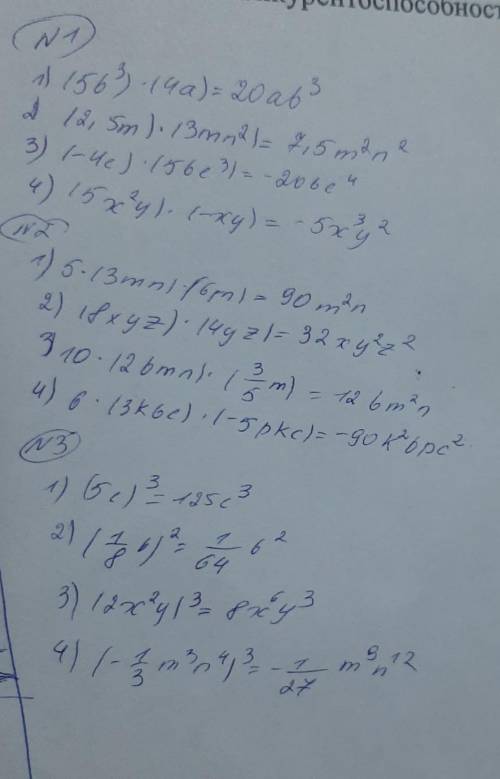 конкурентоспособност
N1
1) (5b³)·(4a)=20ab³
2 (2,5m)·(3mn²)=7,5m²n²
3) (-4c)·(5bc³)=-20bc⁴
4) (5x²y)·(-xy)=-5x³y²
N2
1) 5·(3mn)·(6m)=90m²n
2) (8xyz)·(4yz)=32xy²z²
3) 10·(2bmn)·(3/5m)=12bm²n
4) 6·(3kbc)·(-5pkc)=-90k²bpc²
N3
1) (5c)³=125c³
2) (1/8b)²=1/64b²
3) (2x²y)³=8x⁶y³
4) (-1/3m³n⁴)³=-1/27m⁹n¹²